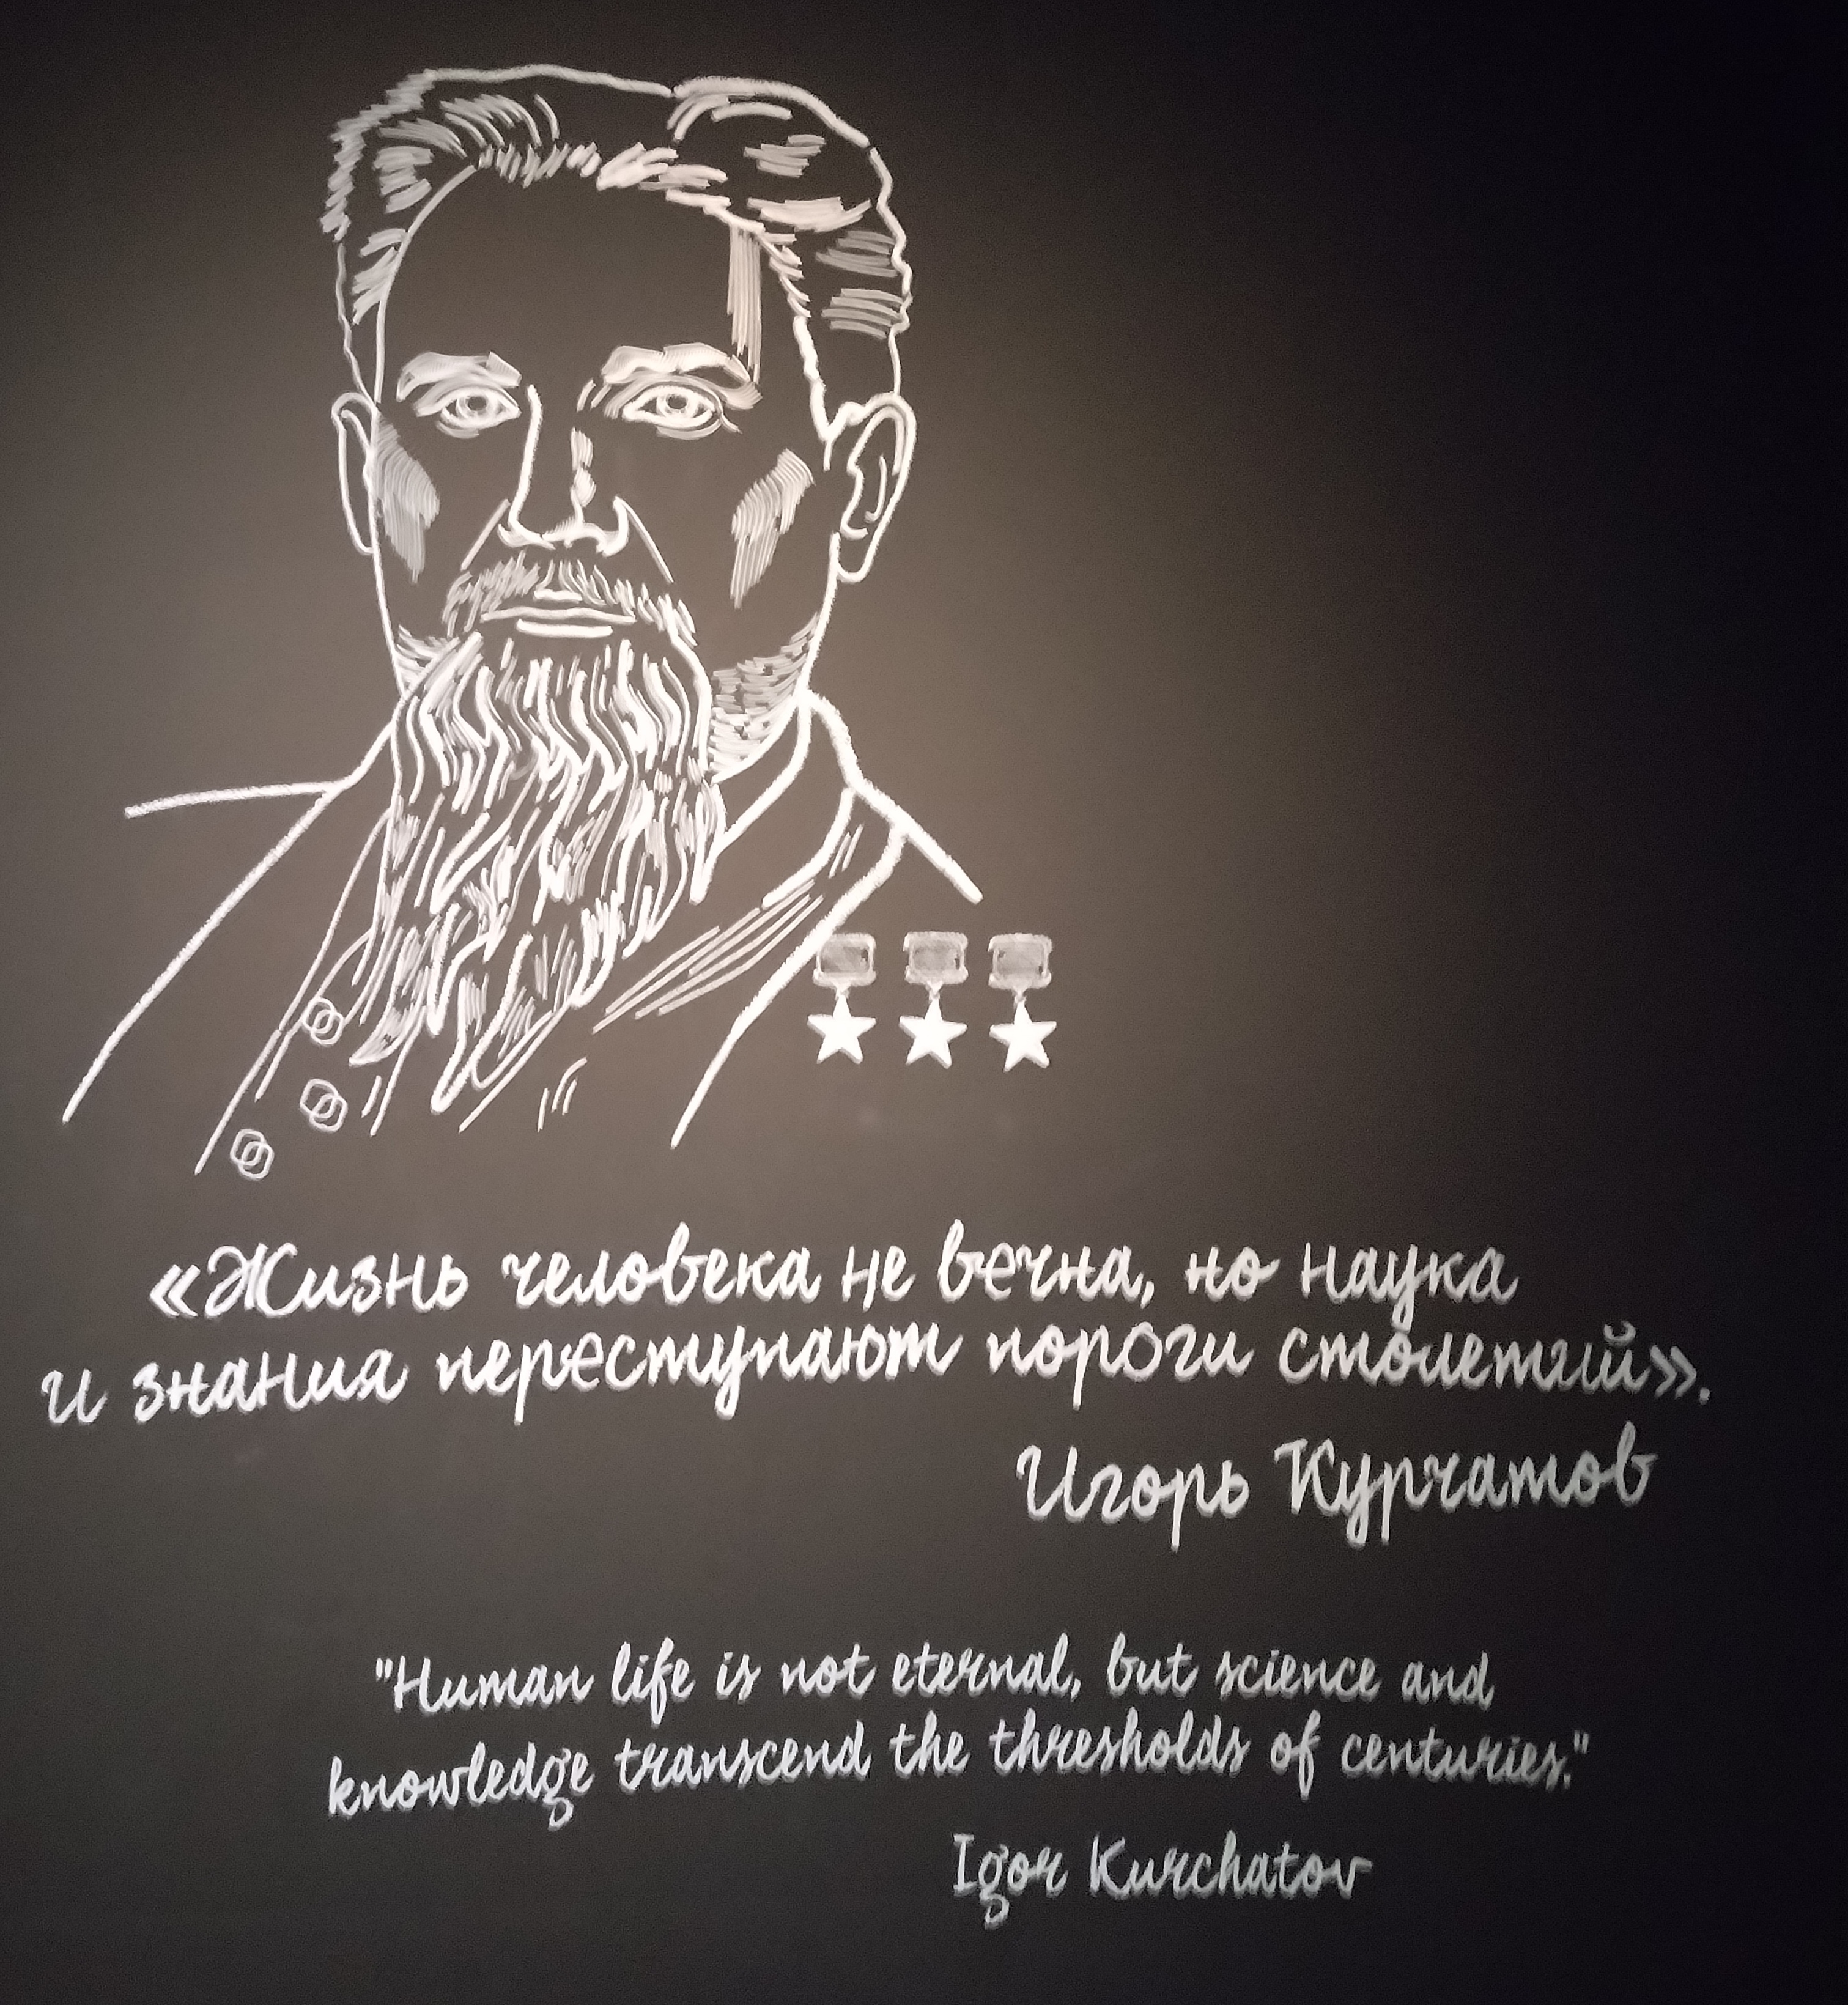 «Жизнь человека не вечна, но наука
и знания переступают пороги столетий».
Игорь Курчатов
"Human life is not eternal, but science and
knowledge transcend the thresholds of centuries."
Igor Kurchatov